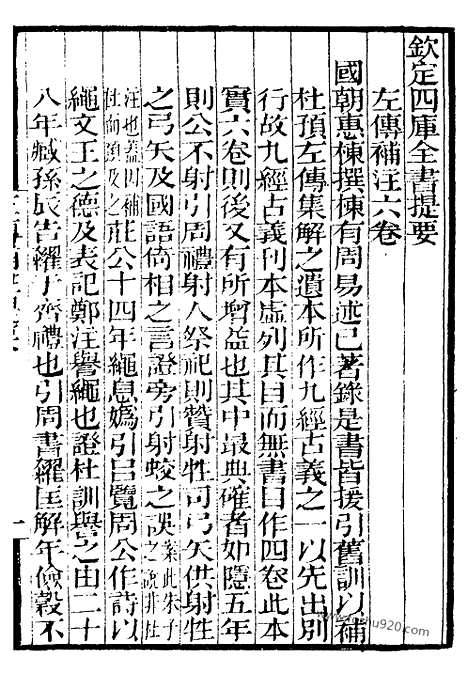 欽定四庫全書提要
左傳補注六卷
國朝惠棟撰棟有周易述已著錄是書皆援引舊訓以補
杜預左傳集解之遺本所作九經古義之一以先出別
行故九經古義刊本虛列其目而無書目作四卷此本
實六卷則後又有所增益也其中最典確者如隱五年
則公不射引周禮射人祭祀則贊射牲司弓矢供射牲
之弓矢及國語倚相之言證旁引射蛟之誤案此朱子之說非杜
注也蓋因補杜而類及之莊公十四年繩息嬀引呂覽周公作詩以
繩文王之德及表記鄭注譽繩也證杜訓譽之由二十
八年臧孫辰告糴于齊禮也引周書糴匡解年儉穀不
一